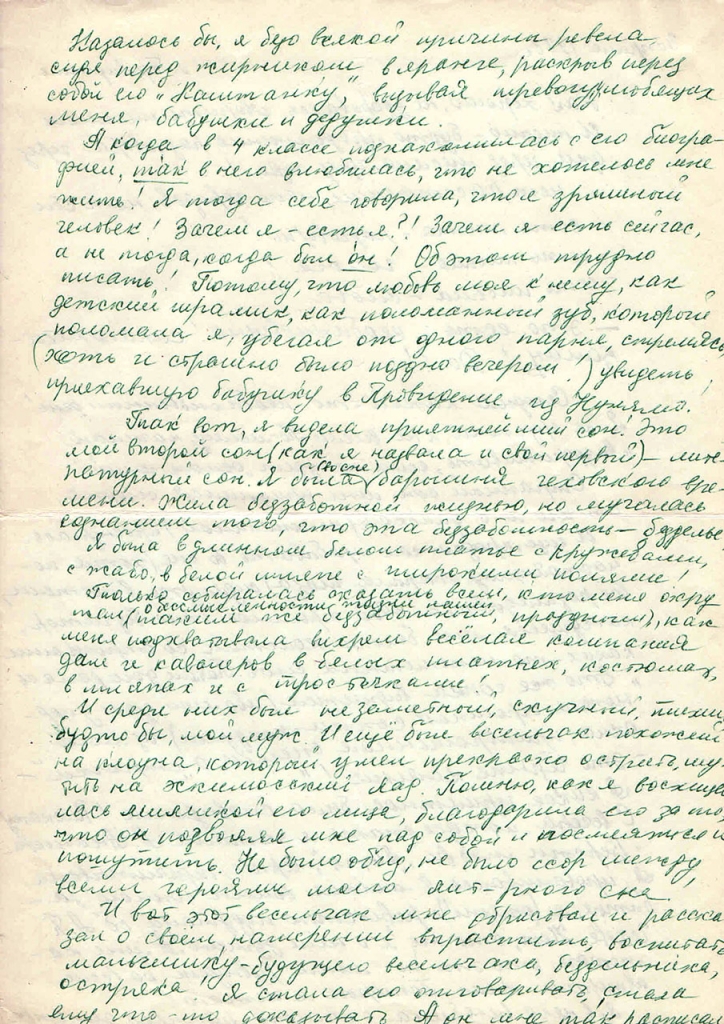 Казалось бы, я безо всякой причины ревела
сидя перед жирником в яранге, раскрыв перед
собой его "Каштанку", вызывая тревогу любящих
меня, бабушки и дедушки.
А когда в 4 классе познакомилась с его биогра-
фией, так в него влюбилась, что не хотелось мне
жить! Я тогда себе говорила, что я зряшный
человек! Зачем я - есть я?! Зачем я есть сейчас,
а не тогда, когда был он! Об этом трудно
писать! Потому, что любовь моя к нему, как
детский шрамик, как поломанный зуб, который
поломала я, убегая от одного парня, стремясь,
(хоть и страшно было поздно вечером!) увидеть
приехавшую бабушку в Провидение из Нунямо.
Так вот, я видела приятнейший сон. Это
мой второй сон (как я назвала и свой первый) - лите-
ратурный сон. Я была (во сне) барышня чеховского вре-
мени. Жила беззаботной жизнью, но мучалась
сознанием того, что эта беззаботность - безделье
Я была в длинном белом платье с кружевами,
с жабо, в белой шляпе с широкими полями!
Только собиралась сказать всем, кто меня окру
жал (таким же беззаботным, праздным), как
о бессмысленности жизни нашей
меня подхватывала вихрем весёлая компания
дам и кавалеров в белых платьях, костюмах,
в шляпах и с тросточками!
И среди них был незаметный, скучный,
будто бы, мой муж. И ещё был весельчак похожий
на клоуна, который умел прекрасно острить, шу
тить на эскимосский лад. Помню, как я восхища
лась мимикой его лица, благодарила его за то,
что он позволял мне над собой и посмеяться и
пошутить. Не было обид, не было ссор между
всеми героями моего лит-рного сна.
И вот этот весельчак мне обрисовал и расска
зал о своём намерении вырастить, воспитать
мальчишку - будущего весельчака, бездельника,
остряка! Я стала его отговаривать, стала
ему что-то доказывать А он мне так расписал